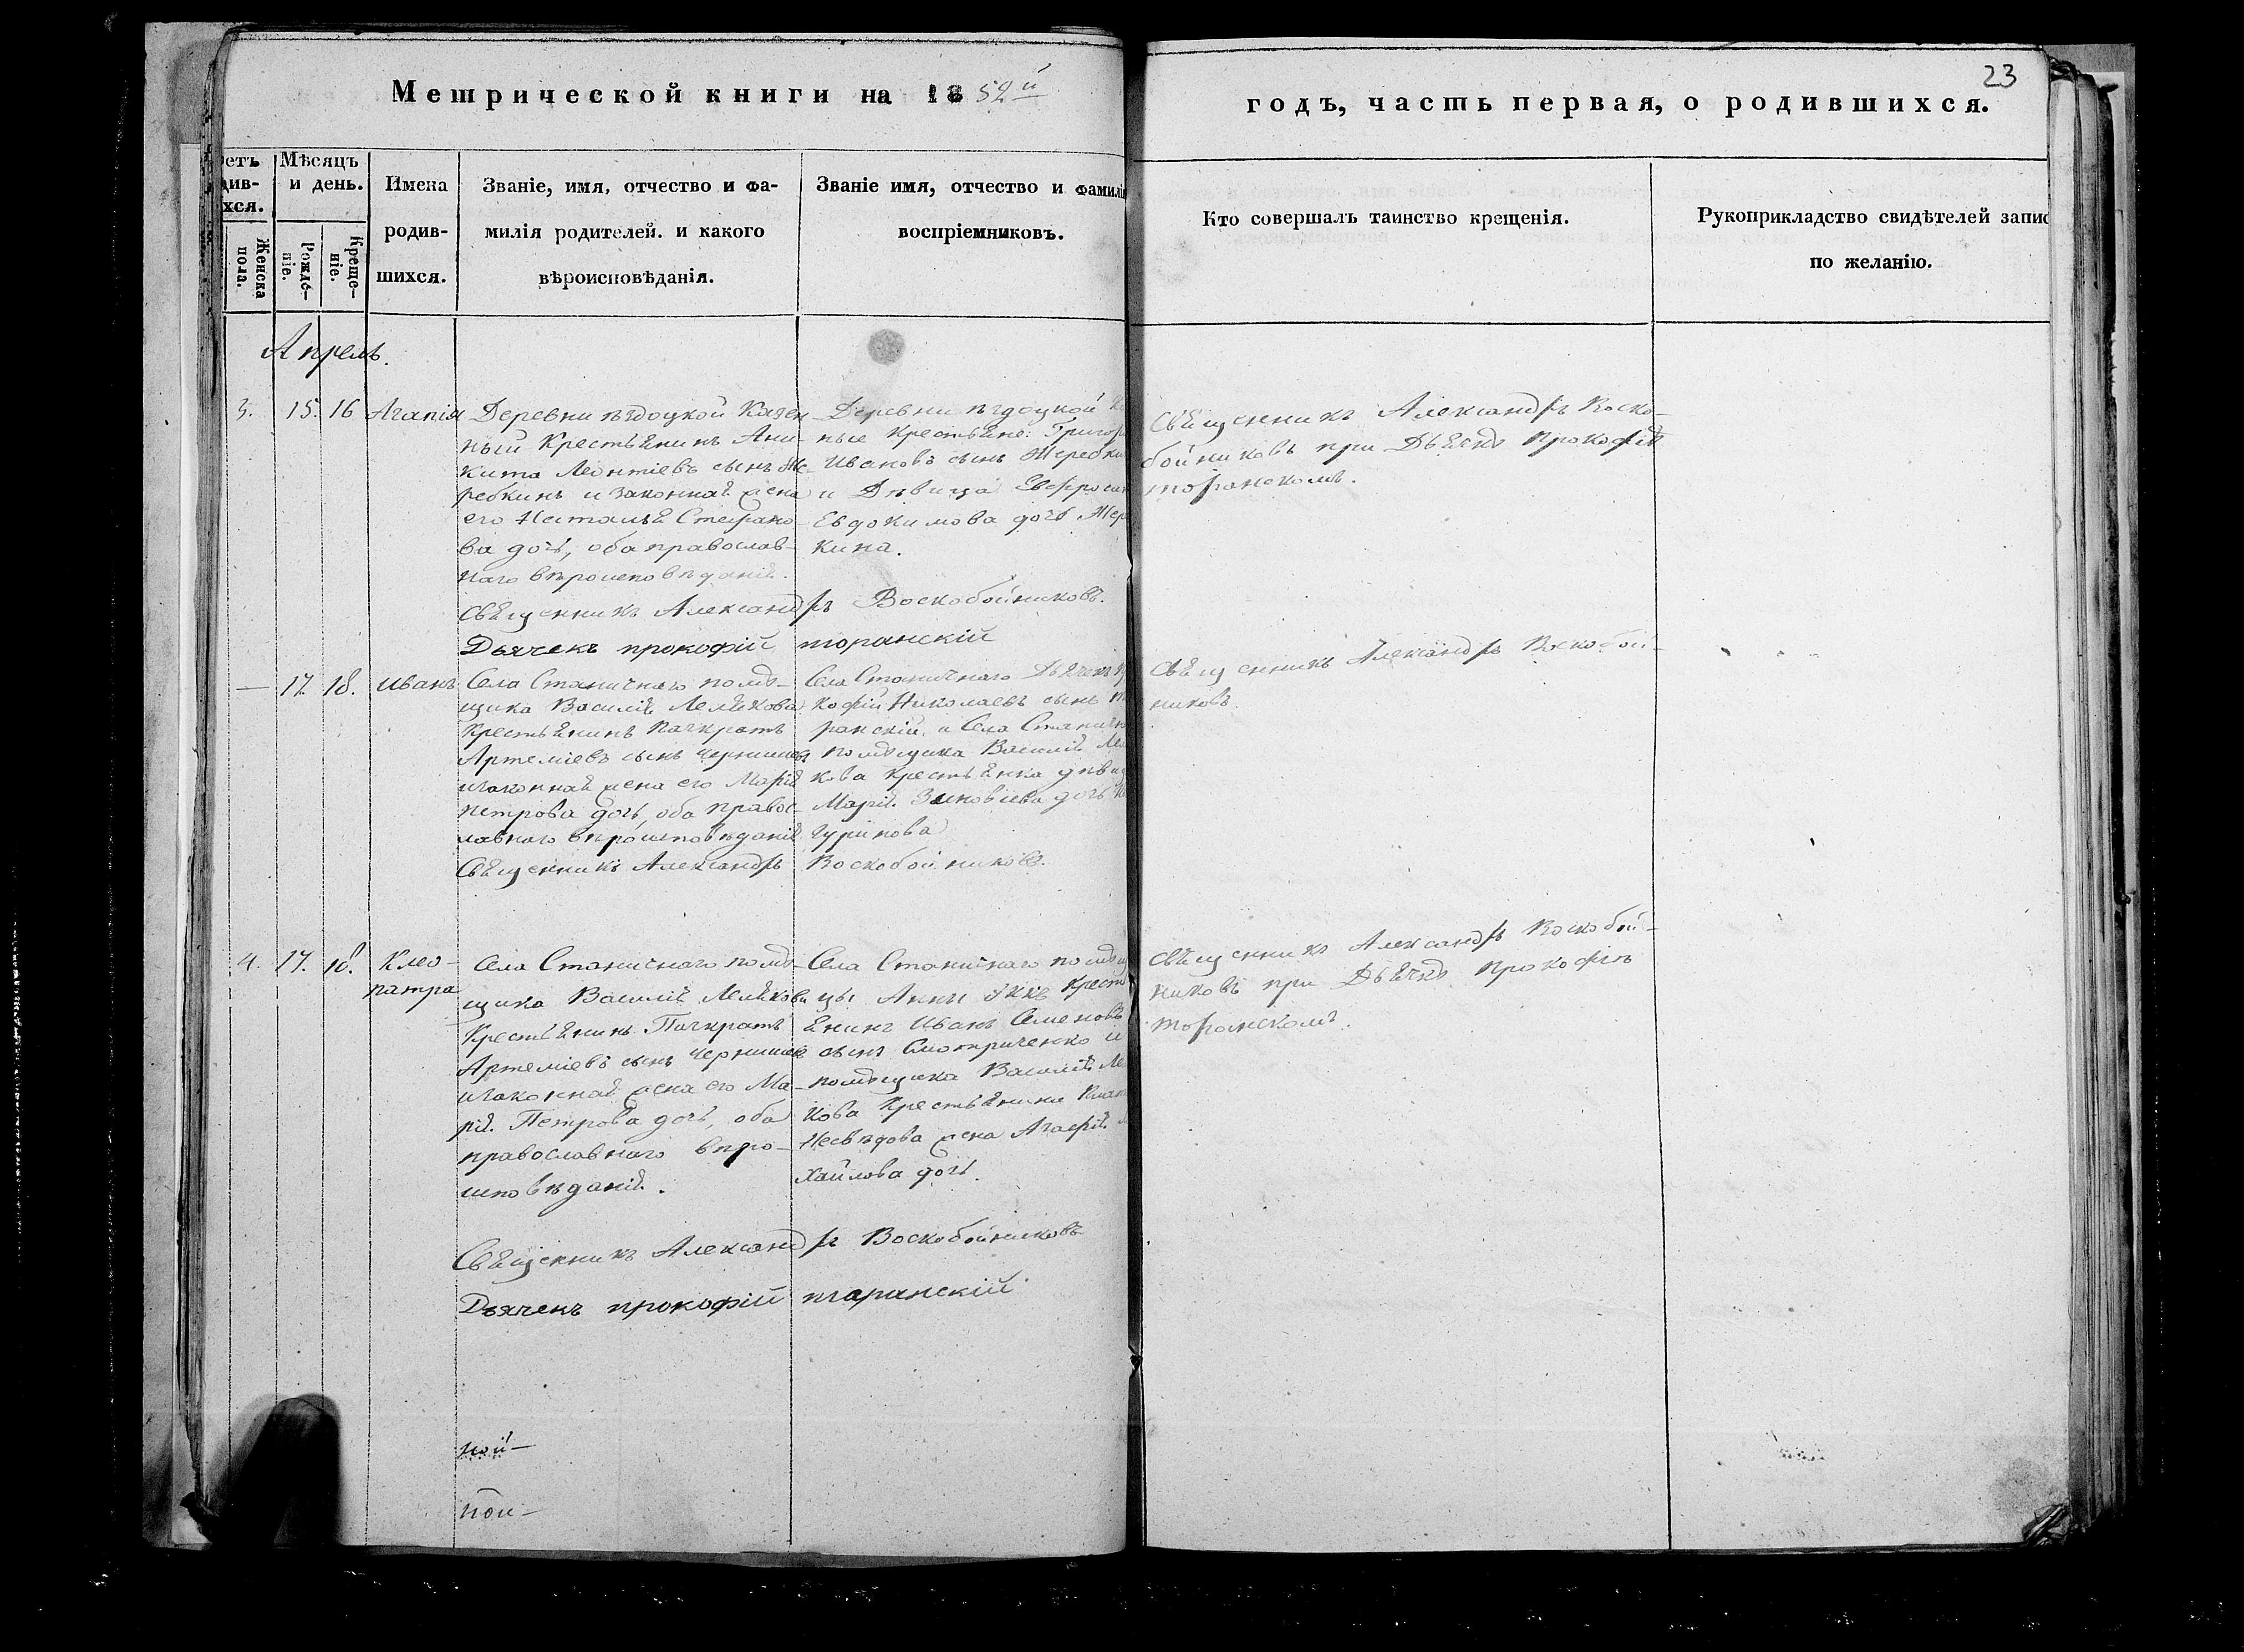 Метрической книги на 1852й
23
годъ, часть первая, о родившихся.
Мѣсяцъ
и день.
хся.
Женска
пола.
Рожде-
ніе.
Креще-
ніе.
Имена
родив-
шихся.
Званіе, имя, отчество и фа-
милія родителей. и какого
вѣроисповѣданія.
Званіе имя, отчество и фамилія
воспріемниковъ.
Кто совершалъ таинство крещенія.
Рукоприкладство свидѣтелей запис
по желанію.
Апрель.
3. 15. 16 Агапія
Деревни Казен
ный Крестьянинъ Ани-
кита Леонтіевъ сынъ Же-
ребкинъ и законная жена
его Наталья Стефано-
ва дочь, оба православ-
наго вѣроисповѣданія.
Деревни
ные Крестьяне: Григор
Ивановъ сынъ Жеребки
и Дѣвица Евфроси
Евдокимова дочь Жер
кина.
Священникъ Александръ Воско-
бойниковъ при Дьячкѣ Прокофіѣ
торанскомъ.
Священникъ Александръ Воскобойниковъ.
Дьячекъ прокофій торанскій
— 17. 18. Иванъ
Села Станичнаго помѣ-
щика Василія Лемякова
Крестьянинъ Панкратъ
Артеміевъ сынъ
изаконная жена его Марія
Петрова дочь, оба правос-
лавнаго вѣроисповѣданія
Села Станичнаго Дьячекъ
кофій Николаевъ сынъ
ранскій, и Села Станичн
помѣщика Василія
кова крестьянка дѣвиц
Марія Зиновіева дочь
гуринова
Священникъ Александръ Воскобой-
никовъ
Священникъ Александръ Воскобойниковъ.
4. 17. 18. Клео-
патра
Села Станичнаго помѣ-
щика Василія Лемякова
Крестьянинъ Панкратъ
Артеміевъ сынъ
изаконная жена его Ма-
рія Петрова дочь, оба
православнаго вѣро-
исповѣданія.
Села Станичнаго помѣщ
цы Анны Крестъ
янинъ Иванъ Семеновъ
сынъ Смотриченко и
помѣщика Василія
кова Крестьянина
Несвѣдова жена Агафія
хайлова дочь.
Священникъ Александръ Воскобой-
никовъ при Дьячкѣ Прокофіѣ
торанскомъ.
Священникъ Александръ Воскобойниковъ
Дьячекъ прокофій торанскій
ной-